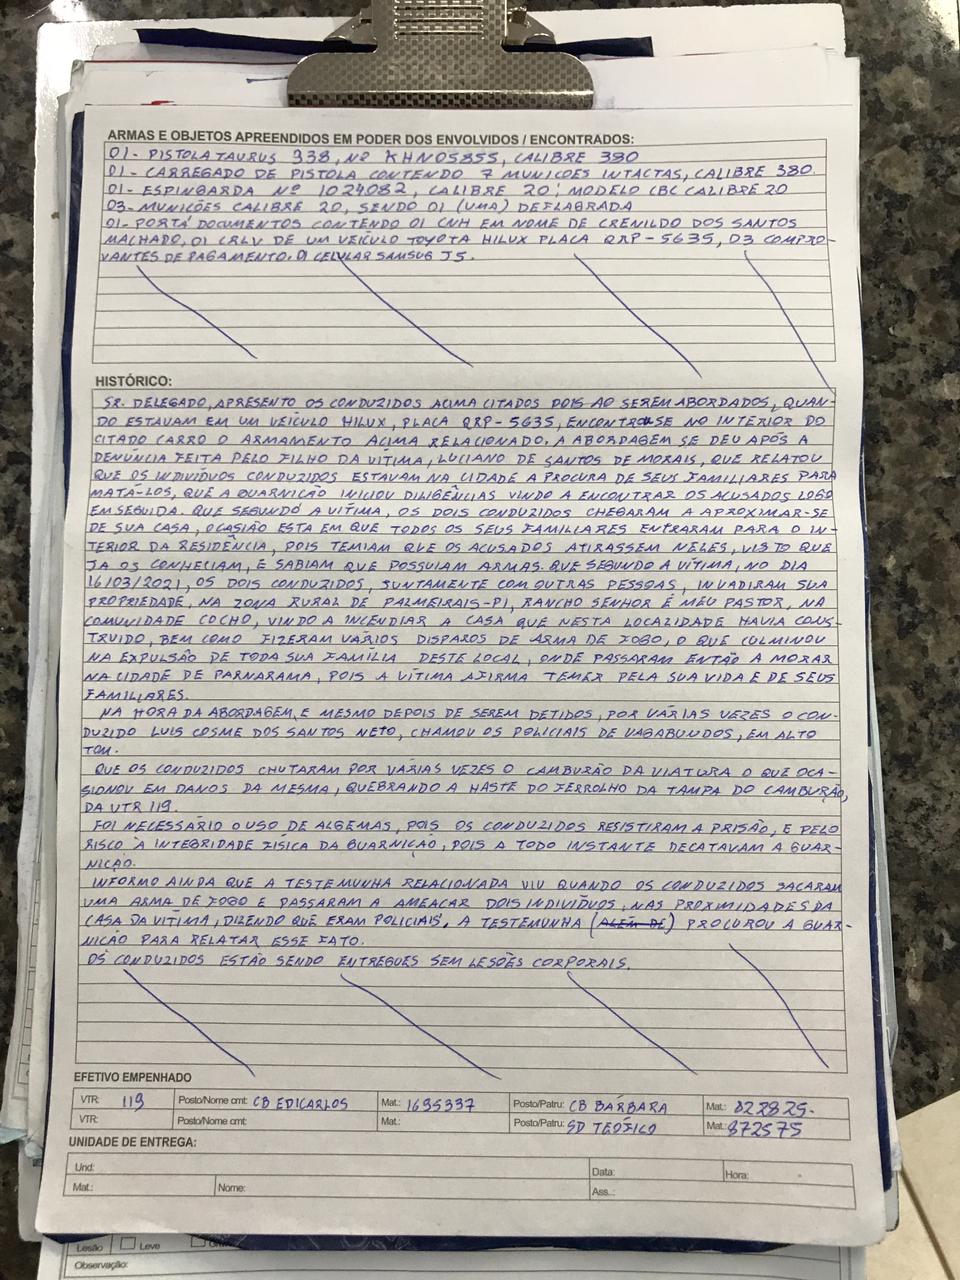 ARMAS E OBJETOS APREENDIDOS EM PODER DOS ENVOLVIDOS / ENCONTRADOS:
01- PISTOLA TAURUS 938, Nº KHN05855, CALIBRE 380
01- CARREGADO DE PISTOLA CONTENDO 7 MUNICOES INTACTAS, CALIBRE 380.
01- ESPINGARDA Nº 1024082, CALIBRE 20; MODELO CBC CALIBRE 20
03- MUNIÇÕES CALIBRE 20, SENDO 01 (UMA) DEFLAGRADA
01- PORTA DOCUMENTOS CONTENDO 01 CNH EM NOME DE CRENILDO DOS SANTOS
MACHADO, 01 CRLV DE UM VEÍCULO TOYOTA HILUX PLACA QRP-5635, 03 COMPRO-
VANTES DE PAGAMENTO. 01 CELULAR SAMSUG J5.
HISTÓRICO:
SR. DELEGADO, APRESENTO OS CONDUZIDOS ACIMA CITADOS DOIS AO SEREM ABORDADOS, QUAN-
DO ESTAVAM EM UM VEÍCULO HILUX, PLACA QRP-5635, ENCONTROUSE NO INTERIOR DO
CITADO CARRO O ARMAMENTO ACIMA RELACIONADO, A ABORDAGEM SE DEU APÓS A
DENÚNCIA FEITA PELO FILHO DA VÍTIMA, LUCIANO DE SANTOS DE MORAIS, QUE RELATOU
QUE OS INDIVÍDUOS CONDUZIDOS ESTAVAM NA CIDADE A PROCURA DE SEUS FAMILIARES PARA
MATÁ-LOS, QUE A GUARNIÇÃO INICIOU DILIGÊNCIAS VINDO A ENCONTRAR OS ACUSADOS LOGO
EM SEGUIDA. QUE SEGUNDO A VÍTIMA, OS DOIS CONDUZIDOS CHEGARAM A APROXIMAR-SE
DE SUA CASA, OCASIÃO ESTA EM QUE TODOS OS SEUS FAMILIARES ENTRARAM PARA O IN-
TERIOR DA RESIDÊNCIA, POIS TEMIAM QUE OS ACUSADOS ATIRASSEM NELES, VISTO QUE
JA OS CONHECIAM, E SABIAM QUE POSSUIAM ARMAS. QUE SEGUNDO A VÍTIMA, NO DIA
16/03/2021, OS DOIS CONDUZIDOS, JUNTAMENTE COM OUTRAS PESSOAS, INVADIRAM SUA
PROPRIEDADE, NA ZONA RURAL DE PALMEIRAIS-PI, RANCHO SENHOR É MEU PASTOR, NA
COMUNIDADE COCHO, VINDO A INCENDIAR A CASA QUE NESTA LOCALIDADE HAVIA CONS-
TRUIDO, BEM COMO FIZERAM VÁRIOS DISPAROS DE ARMA DE FOGO, O QUE CULMINOU
NA EXPULSÃO DE TODA SUA FAMÍLIA DESTE LOCAL, ONDE PASSARAM ENTÃO A MORAR
NA CIDADE DE PARNARAMA, POIS A VÍTIMA AFIRMA TEMER PELA SUA VIDA E DE SEUS
FAMILIARES.
NA HORA DA ABORDAGEM, E MESMO DEPOIS DE SEREM DETIDOS, POR VÁRIAS VEZES O CON-
DUZIDO LUIS COSME DOS SANTOS NETO, CHAMOU OS POLICIAIS DE VAGABUNDOS, EM ALTO
TOM.
QUE OS CONDUZIDOS CHUTARAM POR VÁRIAS VEZES O CAMBURÃO DA VIATURA O QUE OCA-
SIONOU EM DANOS DA MESMA, QUEBRANDO A HASTE DO FERROLHO DA TAMPA DO CAMBURÃO,
DA VTR 119.
FOI NECESSÁRIO O USO DE ALGEMAS, POIS OS CONDUZIDOS RESISTIRAM A PRISÃO, E PELO
RISCO À INTEGRIDADE FÍSICA DA GUARNIÇÃO, POIS A TODO INSTANTE DECATAVAM A GUAR-
NIÇÃO.
INFORMO AINDA QUE A TESTEMUNHA RELACIONADA VIU QUANDO OS CONDUZIDOS SACARAM
UMA ARMA DE FOGO E PASSARAM A AMEAÇAR DOIS INDIVÍDUOS, NAS PROXIMIDADES DA
CASA DA VÍTIMA, DIZENDO QUE ERAM POLICIAIS. A TESTEMUNHA (ALÉM DE) PROCUROU A GUAR-
NIÇÃO PARA RELATAR ESSE FATO.
OS CONDUZIDOS ESTÃO SENDO ENTREGUES SEM LESÕES CORPORAIS.
EFETIVO EMPENHADO
VTR: 119 Posto/Nome cmt: CB EDICARLOS Mat.: 1695337 Posto/Patru.: CB BÁRBARA Mat.: 822825.
VTR: Posto/Nome cmt: Mat.: Posto/Patru.: SD TEÓFICO Mat.: 872575
UNIDADE DE ENTREGA:
Und: Data: Hora:
Mat.: Nome: Ass.:
Lesão Leve
Observação: